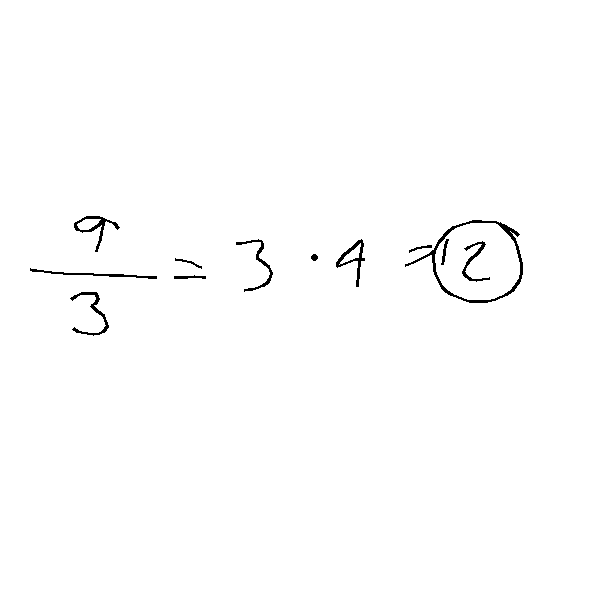 9/3 = 3 · 4 = 12